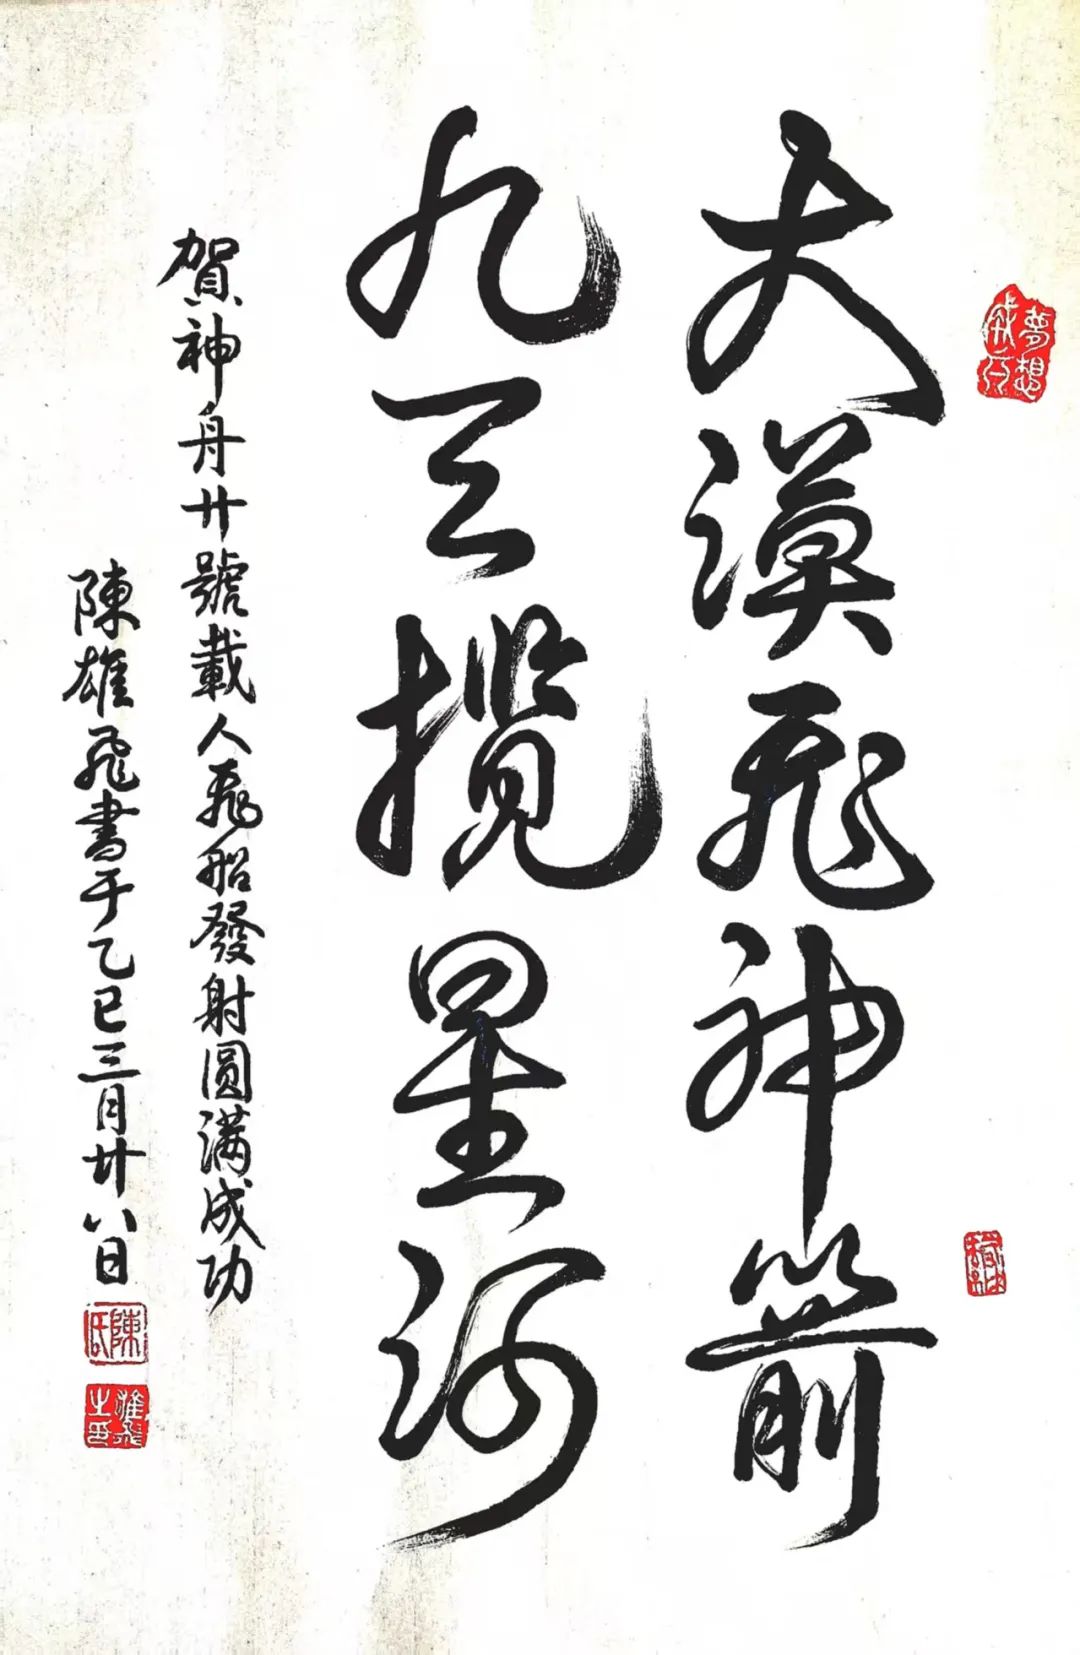 大漠飛神箭
九天揽星河
賀神舟廿號載人飛船發射圓满成功
陳雄飛書于乙巳三月廿八日
夢想成真
陳氏
雄飛之印